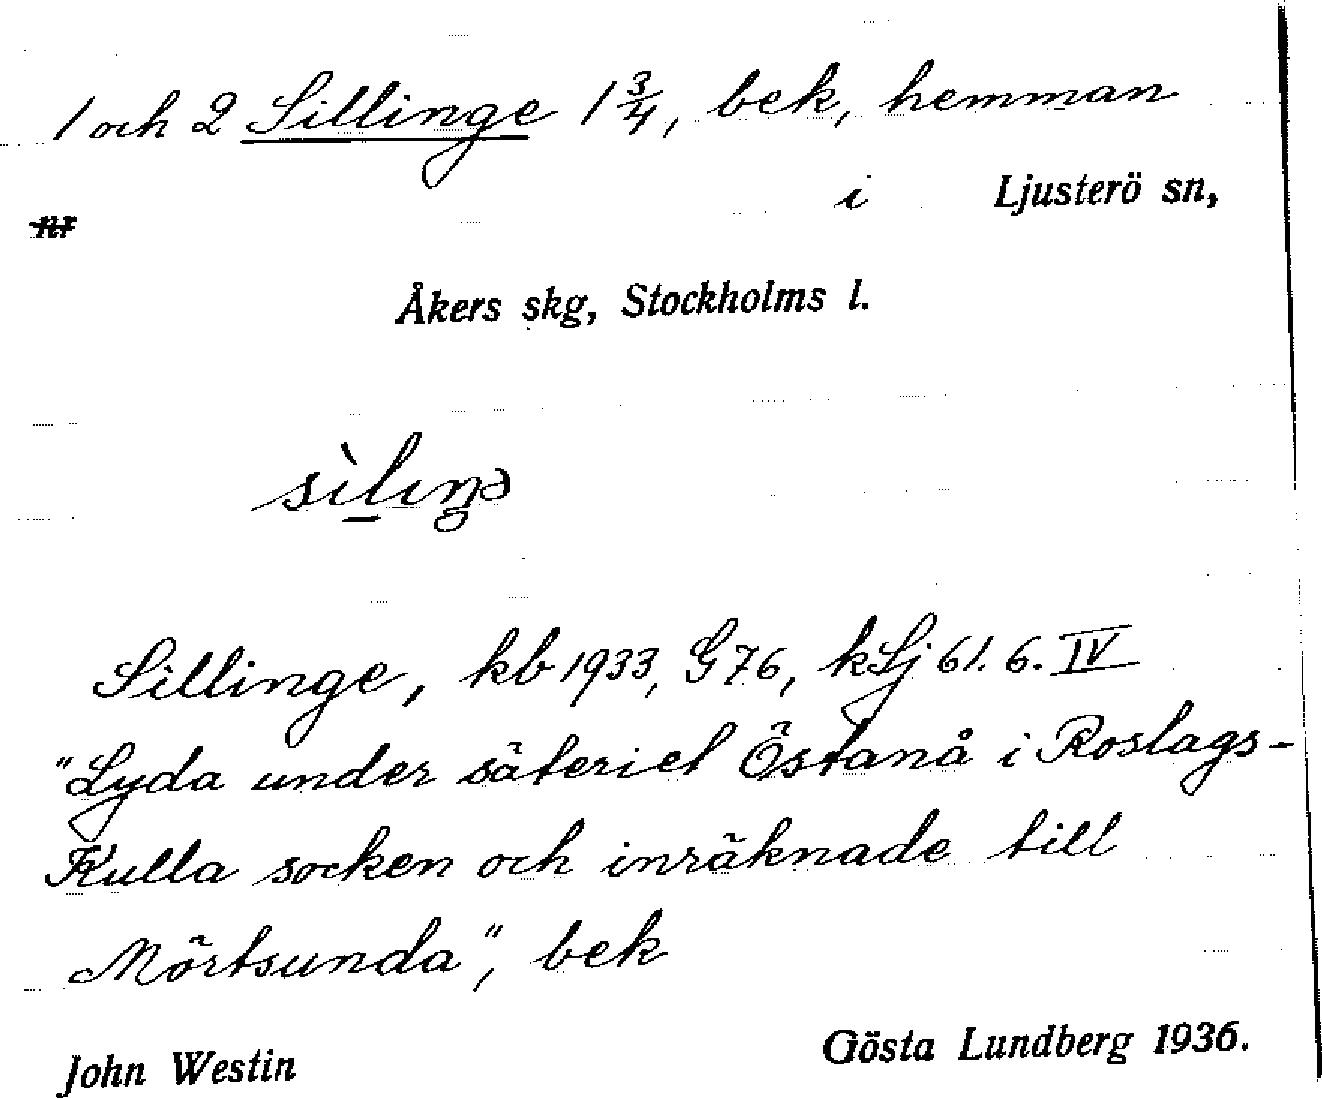 1 och 2 Sillinge 1 3/4, bek, hemman
nr i Ljusterö sn,
Åkers skg, Stockholms l.
Sillinge, kb 1933, G 76, kLj 61. 6. IV
"Lyda under säteriet Östanå i Roslags-
Kulla socken och inräknade till
Mörtsunda", bek
John Westin Gösta Lundberg 1936.